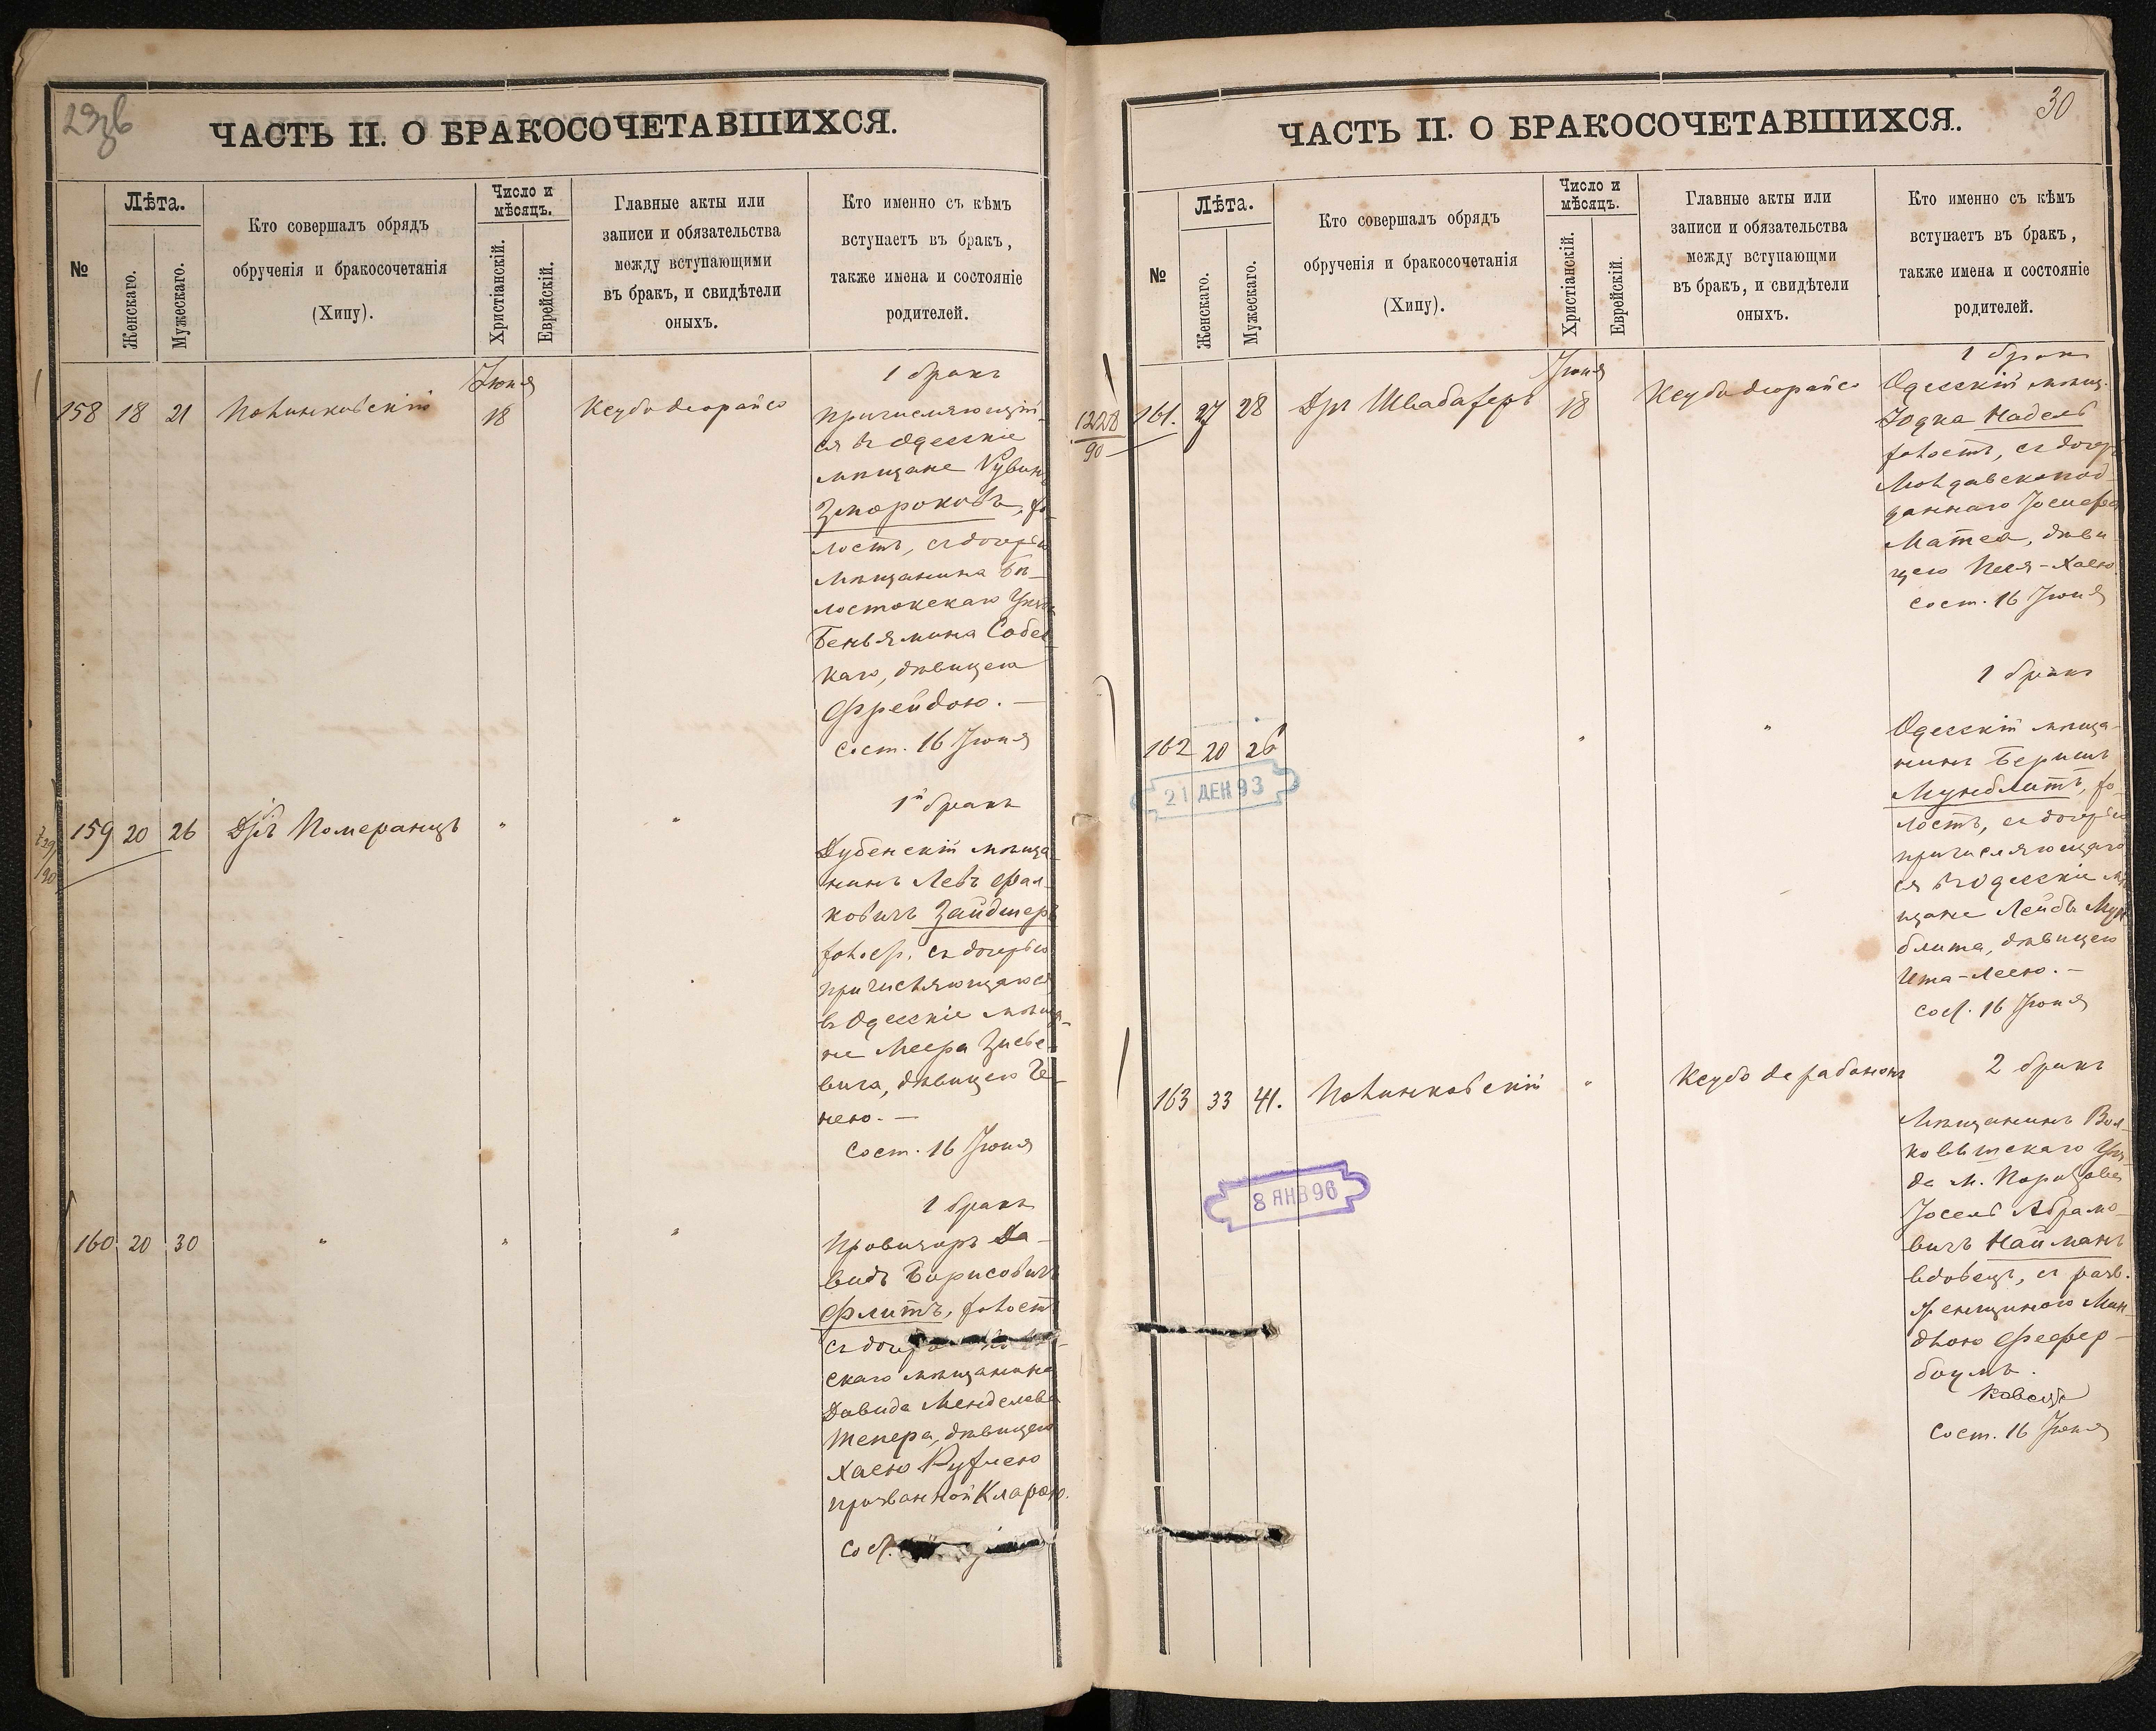 ЧАСТЬ II. О БРАКОСОЧЕТАВШИХСЯ.
№
Лѣта.
Женскаго.
Мужескаго.
Кто совершалъ обрядъ
обрученія и бракосочетанія
(Хипу).
Число и
мѣсяцъ.
Христіанскій.
Еврейскій.
Главные акты или
записи и обязательства
между вступающими
въ бракъ, и свидѣтели
оныхъ.
Кто именно съ кѣмъ
вступаетъ въ бракъ,
также имена и состояніе
родителей.
158 18 21 Полинковскій
Іюня
18
Ксубо деорайсо
1 бракъ
Причисляющій-
ся въ Одесскіе
мѣщане Рувинъ
Змороковъ, хо-
лостъ, съ дочерью
мѣщанина Бѣ-
лостокскаго Уѣзда
Беньямина Собел-
каго, дѣвицею
Фрейдою. —
Сост. 16 Іюня
159 20 26 Дръ Померанцъ " "
1й бракъ
Дубенскій мѣща-
нинъ Левъ Фал-
ковичъ Зайдшеръ
холос., съ дочерью
причисляющагося
въ Одесскіе мѣща-
не Меера
вича, дѣвицею Ге-
нею. —
Сост. 16 Іюня
160 20 30 " " "
1 бракъ
Провизоръ Да-
видъ Борисовичъ
Флитъ, холостъ
съ дочер
скаго мѣщанина
Давида Менделева
Тепера, дѣвицею
Хаею Рухлею
прозванной Кларою.
Сост.
30
ЧАСТЬ II. О БРАКОСОЧЕТАВШИХСЯ.
№
Лѣта.
Женскаго.
Мужескаго.
Кто совершалъ обрядъ
обрученія и бракосочетанія
(Хипу).
Число и
мѣсяцъ.
Христіанскій.
Еврейскій.
Главные акты или
записи и обязательства
между вступающми
въ бракъ, и свидѣтели
оныхъ.
Кто именно съ кѣмъ
вступаетъ въ бракъ,
также имена и состояніе
родителей.
1228
90
161. 27 28 Дръ Швабахеръ
Іюня
18
Ксубо деорайсо
1 бракъ
Одесскій мѣщ.
Іодка Надель
холостъ, съ дочерью
Молдавскопод-
даннаго Іосифа
Матеса, дѣви-
цею Песя-Хаею
Сост. 16 Іюня
162 20 26 " "
21 ДЕК 93
1 бракъ
Одесскій мѣща-
нинъ Беришъ
Мунблитъ, хо-
лостъ, съ дочерью
причисляющаго
ся въ Одесскіе мѣ-
щане Лейбы Мун-
блита, дѣвицею
Ита-Леею. —
Сост. 16 Іюня
163 33 41. Полинковскій " Ксубо дерабононъ
8 ЯНВ 96
2 бракъ
Мѣщанинъ Вол-
ковышскаго Уѣз-
да м. Порозова
Іосель Абрамо-
вичъ Найманъ
вдовецъ, съ разв.
женщиною Мин-
длею Фефер-
боумъ.
Сост. 16 Іюня